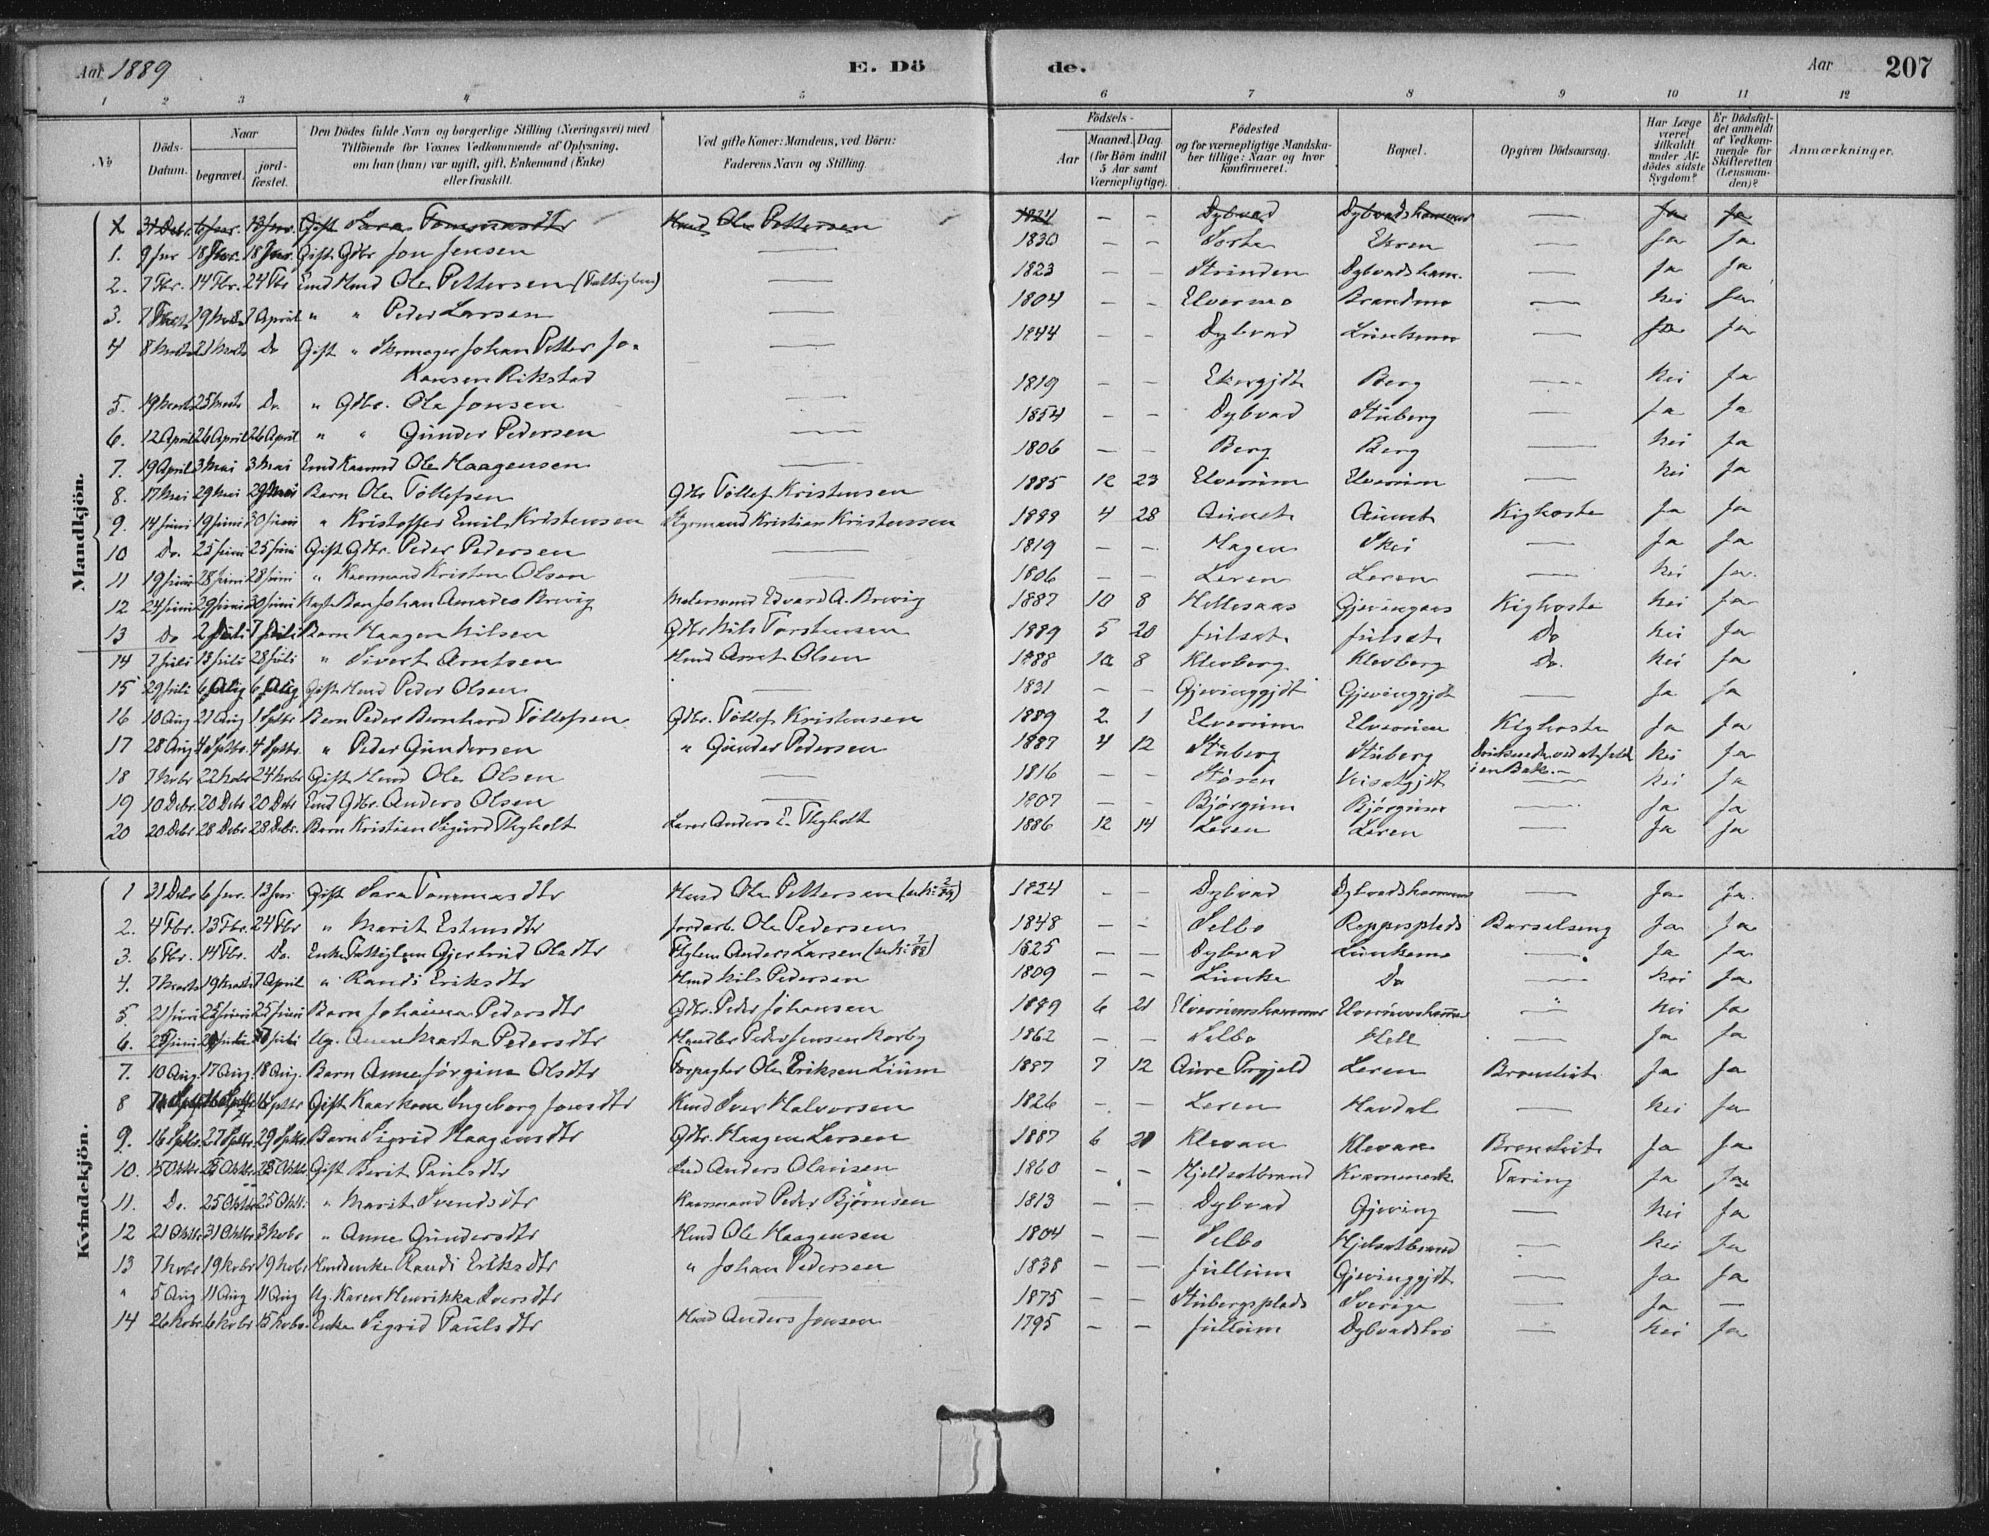 Aar 1889
E. Dö de.
Aar 207
1 2 3 4 5 6 7 8 9 10 11 12
No
Döds-Datum.
Naar
begravet.
jord-fæstet.
Den Dödes fulde Navn og borgerlige Stilling (Næringsvei) med
Tilföiende for Voxnes Vedkommende af Oplysning,
om han (hun) var ugift, gift, Enkemand (Enke)
eller fraskilt.
Ved gifte Koner: Mandens, ved Börn:
Faderens Navn og Stilling.
Födsels-
Aar
Maaned. Dag.
(for Börn indtil
5 Aar samt
Værnepligtige).
Födested
og for værnepligtige Mandska-
ber tillige: Naar og hvor
konfirmeret.
Bopæl.
Opgiven Dödsaarsag.
Har Læge
været
tilkaldt
under Af-
dödes sidste
Sygdom?
Er Dödsfal-
det anmeldt
af Vedkom-
mende for
Skifteretten
(Lensman-
den)?
Anmærkninger.
Mandkjön.
1. 31 Debr. 6 Jnr. 13 Jnr. Gift Sara Tommasdtr Husmd Ole Pettersen 1824 — — Dybvad Dybvadshammer — Ja Ja
1. 9 Jnr 18 Jnr. 18 Jnr. Gift Gbr Jon Jensen — 1830 — — Sorte Ekren — Ja Ja
2. 7 Fbr. 14 Fbr. 24 Fbr Ole Pettersen — 1823 — — Strinden Dybvadsham. — Ja Ja
3. 19 Marts 7 April " " Peder Larsen — 1804 — — Elvermo Brandmo — Nei Ja
4 8 Marts 21 Marts Do Gift " Johan Petter Jo- — 1844 — — Dybvad — Ja Ja
hansen Rikstad
5. 19 Marts 25 Marts Do " Gbr. Ole Jonsen — 1819 — — Berg — Nei Ja
6. 12 April 26 April 26 April " " Gunder Pedersen — 1854 — — Dybvad Stuberg — Ja Ja
7. 19 April 3 Mai 3 Mai Ole Haagensen — 1806 — — Berg Berg — Nei Ja
8. 17 Mai 29 Mai 29 Mai Barn Ole Töllefsen Gbr Töllef Kristensen 1885 12 23 Elverum Elverum — Nei Ja
9. 14 Juni 19 Juni 30 Juni " Kristoffer Emil Kristensen Styrmand Kristian Kristenssen 1888 4 28 Aunet Aunet Kighoste Ja Ja
10 Do. 25 Juni 25 Juni Gift Gbr. Peder Pedersen — 1819 — — Hagen Skei — Ja Ja
11 19 Juni 28 Juni 28 Juni " Kaarmand Kristen Olsen — 1806 — — Leren Leren — Nei Ja
12 24 Juni 29 Juni 30 Juni Johan Amadeo Brevig Edvard A. Brevig 1887 10 8 Hellesaas Gjevingaas Kighoste Nei Ja
13 Do 2 Juli 7 Juli Barn Haagen Nilsen Gbr Nils Torstensen 1889 5 20 Julset Julset Do Nei Ja
14 7 Juli 13 Juli 28 Juli " Sivert Arntsen Husmd Arnt Olsen 1888 10 8 Klevberg Klevberg Do. Nei Ja
15 29 Juli 6 Aug 6 Aug Gift Husmd Peder Olsen — 1831 — — Gjevinggjdt Gjevinggjdt — Ja Ja
16 10 Aug 21 Aug 1 Sptbr Barn Peder Bernhard Töllefsen Gbr. Töllef Kristensen 1889 2 1 Elverum Elverum Kighoste Ja Ja
17 28 Aug 4 Sptbr. 4 Sptbr. " Peder Gundersen " Gunder Pedersen 1887 4 12 Stuberg Stuberg Druknede ved at falde Nei Ja
i en Bæk.
18 7 Nobr 22 Nobr 24 Nobr Gift Husmd Ole Olsen — 1816 — — Stören — Nei Ja
19 10 Debr. 20 Debr 20 Debr Emd Gbr. Anders Olsen — 1807 — — Björgum Björgum — Ja Ja
20 20 Debr 28 Debr 28 Debr. Barn Kristian Sigurd Thyholt Lærer Anders E. Thyholt 1886 12 14 Leren Leren — Ja Ja
Kvindekjön.
1 31 Debr 6 Jnr. 13 Jnr Gift Sara Tommasdtr Husmd Ole Pettersen 1824 — — Dybvad Dybvadshammer — Ja Ja
2. 4 Fbr. 13 Fbr. 24 Fbr " Marit Estensdtr Jordarb. Ole Pedersen 1848 — — Selbo Reppesplads Barselseng Ja Ja
3. 6 Fbr. 14 Fbr. Do. Enke Gjertrud Olsdtr Anders Larsen 1825 — — Dybvad — Ja Ja
4. 7 Marts 19 Marts 7 April " Randi Eriksdtr Husmd Nils Pedersen 1809 — — Do — Nei Ja
5. 21 Juni 25 Juni 25 Juni Barn Johanna Pedersdtr Gbr. Peder Johansen 1889 6 21 Elverumshammer Elverumshammer " Nei Ja
6. 25 Juni Juli Juli Ug. Anne Marta Pedersdtr Handler Peder Jensen Norby 1862 — — Selbo Hell — Ja Ja
7. 10 Aug. 17 Aug. 18 Aug. Barn Anne Jörgine Olsdtr Forpagter Ole Eriksen Lium 1887 7 12 Aure Prgjeld Leren Bronchit Ja Ja
8 Sptbr Gift Kaarkone Ingeborg Jonsdtr Iver Halvorsen 1826 — — Leren Havdal — Nei Ja
9. 16 Sptbr. 27 Sptbr. 29 Sptbr. Barn Sigrid Haagensdtr Gbr. Haagen Larsen 1887 6 21 Klevan Klevan Bronchit Ja Ja
10. 15 Oktbr. 25 Oktbr. 25 Oktbr. Gift Berit Paulsdtr Anders Olausen 1860 — — Hjelsetbrand Kvarnmerk Tæring Ja Ja
11. Do. 25 Oktbr. 25 Oktbr. " Marit Svendsdtr Kaarmand Peder Björnsen 1813 — — Dybvad Gjeving — Nei Ja
12 21 Oktbr. 31 Oktbr. 3 Nobr " Anne Gundersdtr Husmd Ole Haagensen 1804 — — Selbo Hjelsetbrand — Nei Ja
13 7 Nobr 19 Nobr 19 Nobr Randi Eriksdtr " Johan Pedersen 1838 — — Jullum Gjevinggjdt — Ja Ja
" 5 Aug 11 Aug 11 Aug Ug. Karen Henrikka Iversdtr — 1875 — — Stubergsplads Sverige — Ja —
14 26 Nobr. 6 Nobr 15 Nobr. Enke Sigrid Paulsdtr Husmd Anders Jonsen 1795 — — Jullum — Nei Ja